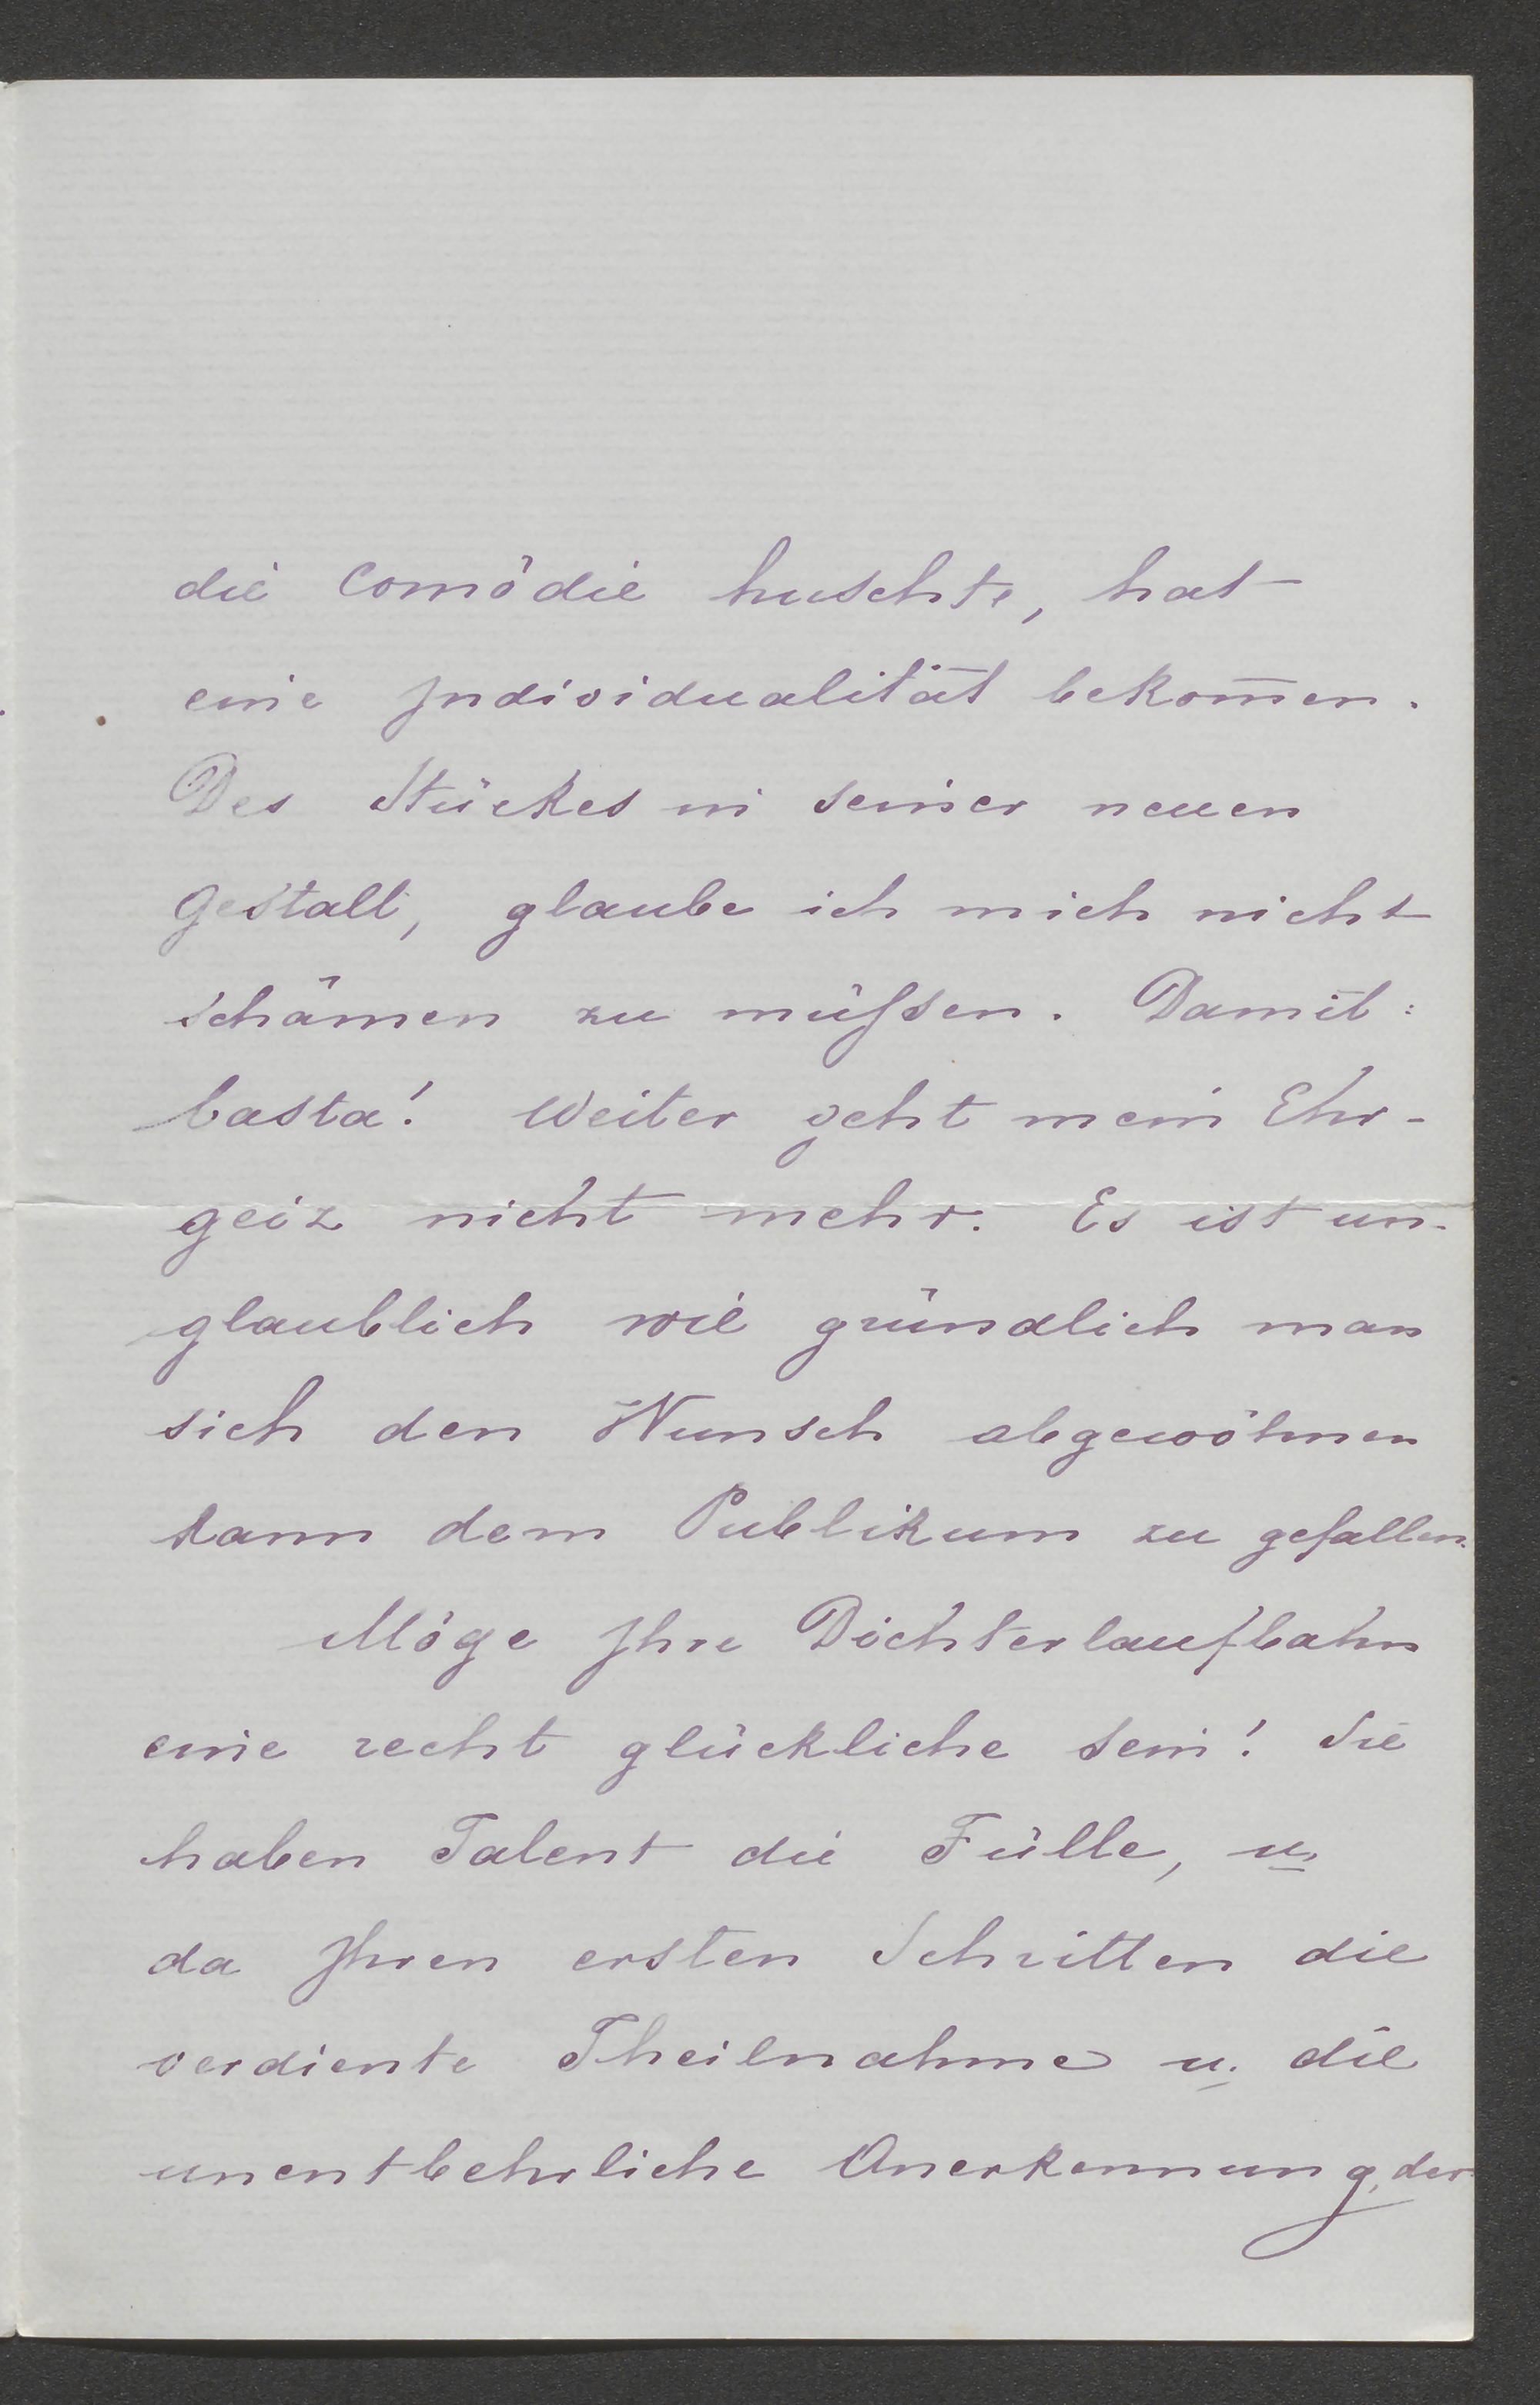 die Comödie huschte, hat
eine Individualität bekom̅en.
Des Stückes in seiner neuen
Gestalt, glaube ich mich nicht
schämen zu müſsen. Damit:
basta! Weiter geht mein Ehr-
geiz nicht mehr. Es ist un-
glaublich wie gründlich man
sich den Wunsch abgewöhnen
kann dem Publikum zu gefallen.
Möge Ihre Dichterlaufbahn
eine recht glückliche sein! Sie
haben Talent die Fülle, u.
da Ihren ersten Schritten die
verdiente Theilnahme u. die
unentbehrliche Anerkennung, der